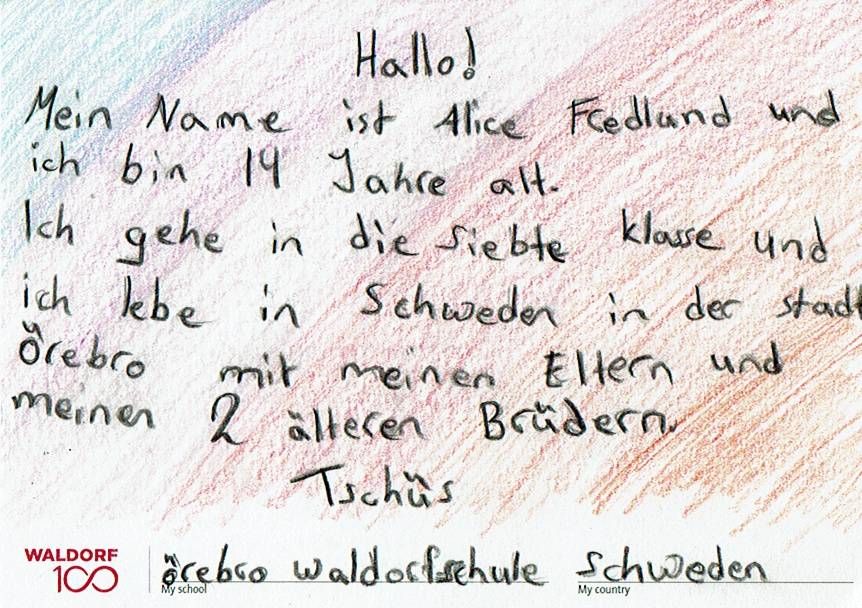 Hallo!
Mein Name ist Alice Fredlund und
ich bin 14 Jahre alt.
Ich gehe in die siebte klasse und
ich lebe in Schweden in der stadt
Örebro mit meinen Eltern und
meinen 2 älteren Brüdern.
Tschüs
WALDORF
100
örebro waldorfschule Schweden
My school My country